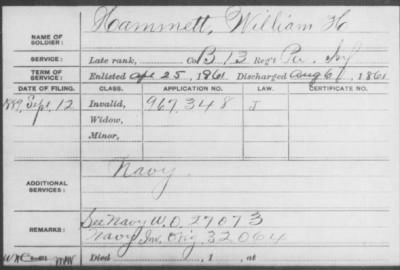 NAME OF SOLDIER: Hammett, William H
SERVICE: Late rank, Co. B 13 Reg't Pa. Inf
TERM OF SERVICE: Enlisted Apr 25, 1861 Discharged Aug 6, 1861
DATE OF FILING. CLASS. APPLICATION NO. LAW. CERTIFICATE NO.
1889, Sept. 12 Invalid, 967,348 J
Widow,
Minor,
ADDITIONAL SERVICES: Navy.
REMARKS: See Navy W.O. 27073
Navy Inv. Orig 32064
Died , 1 , at